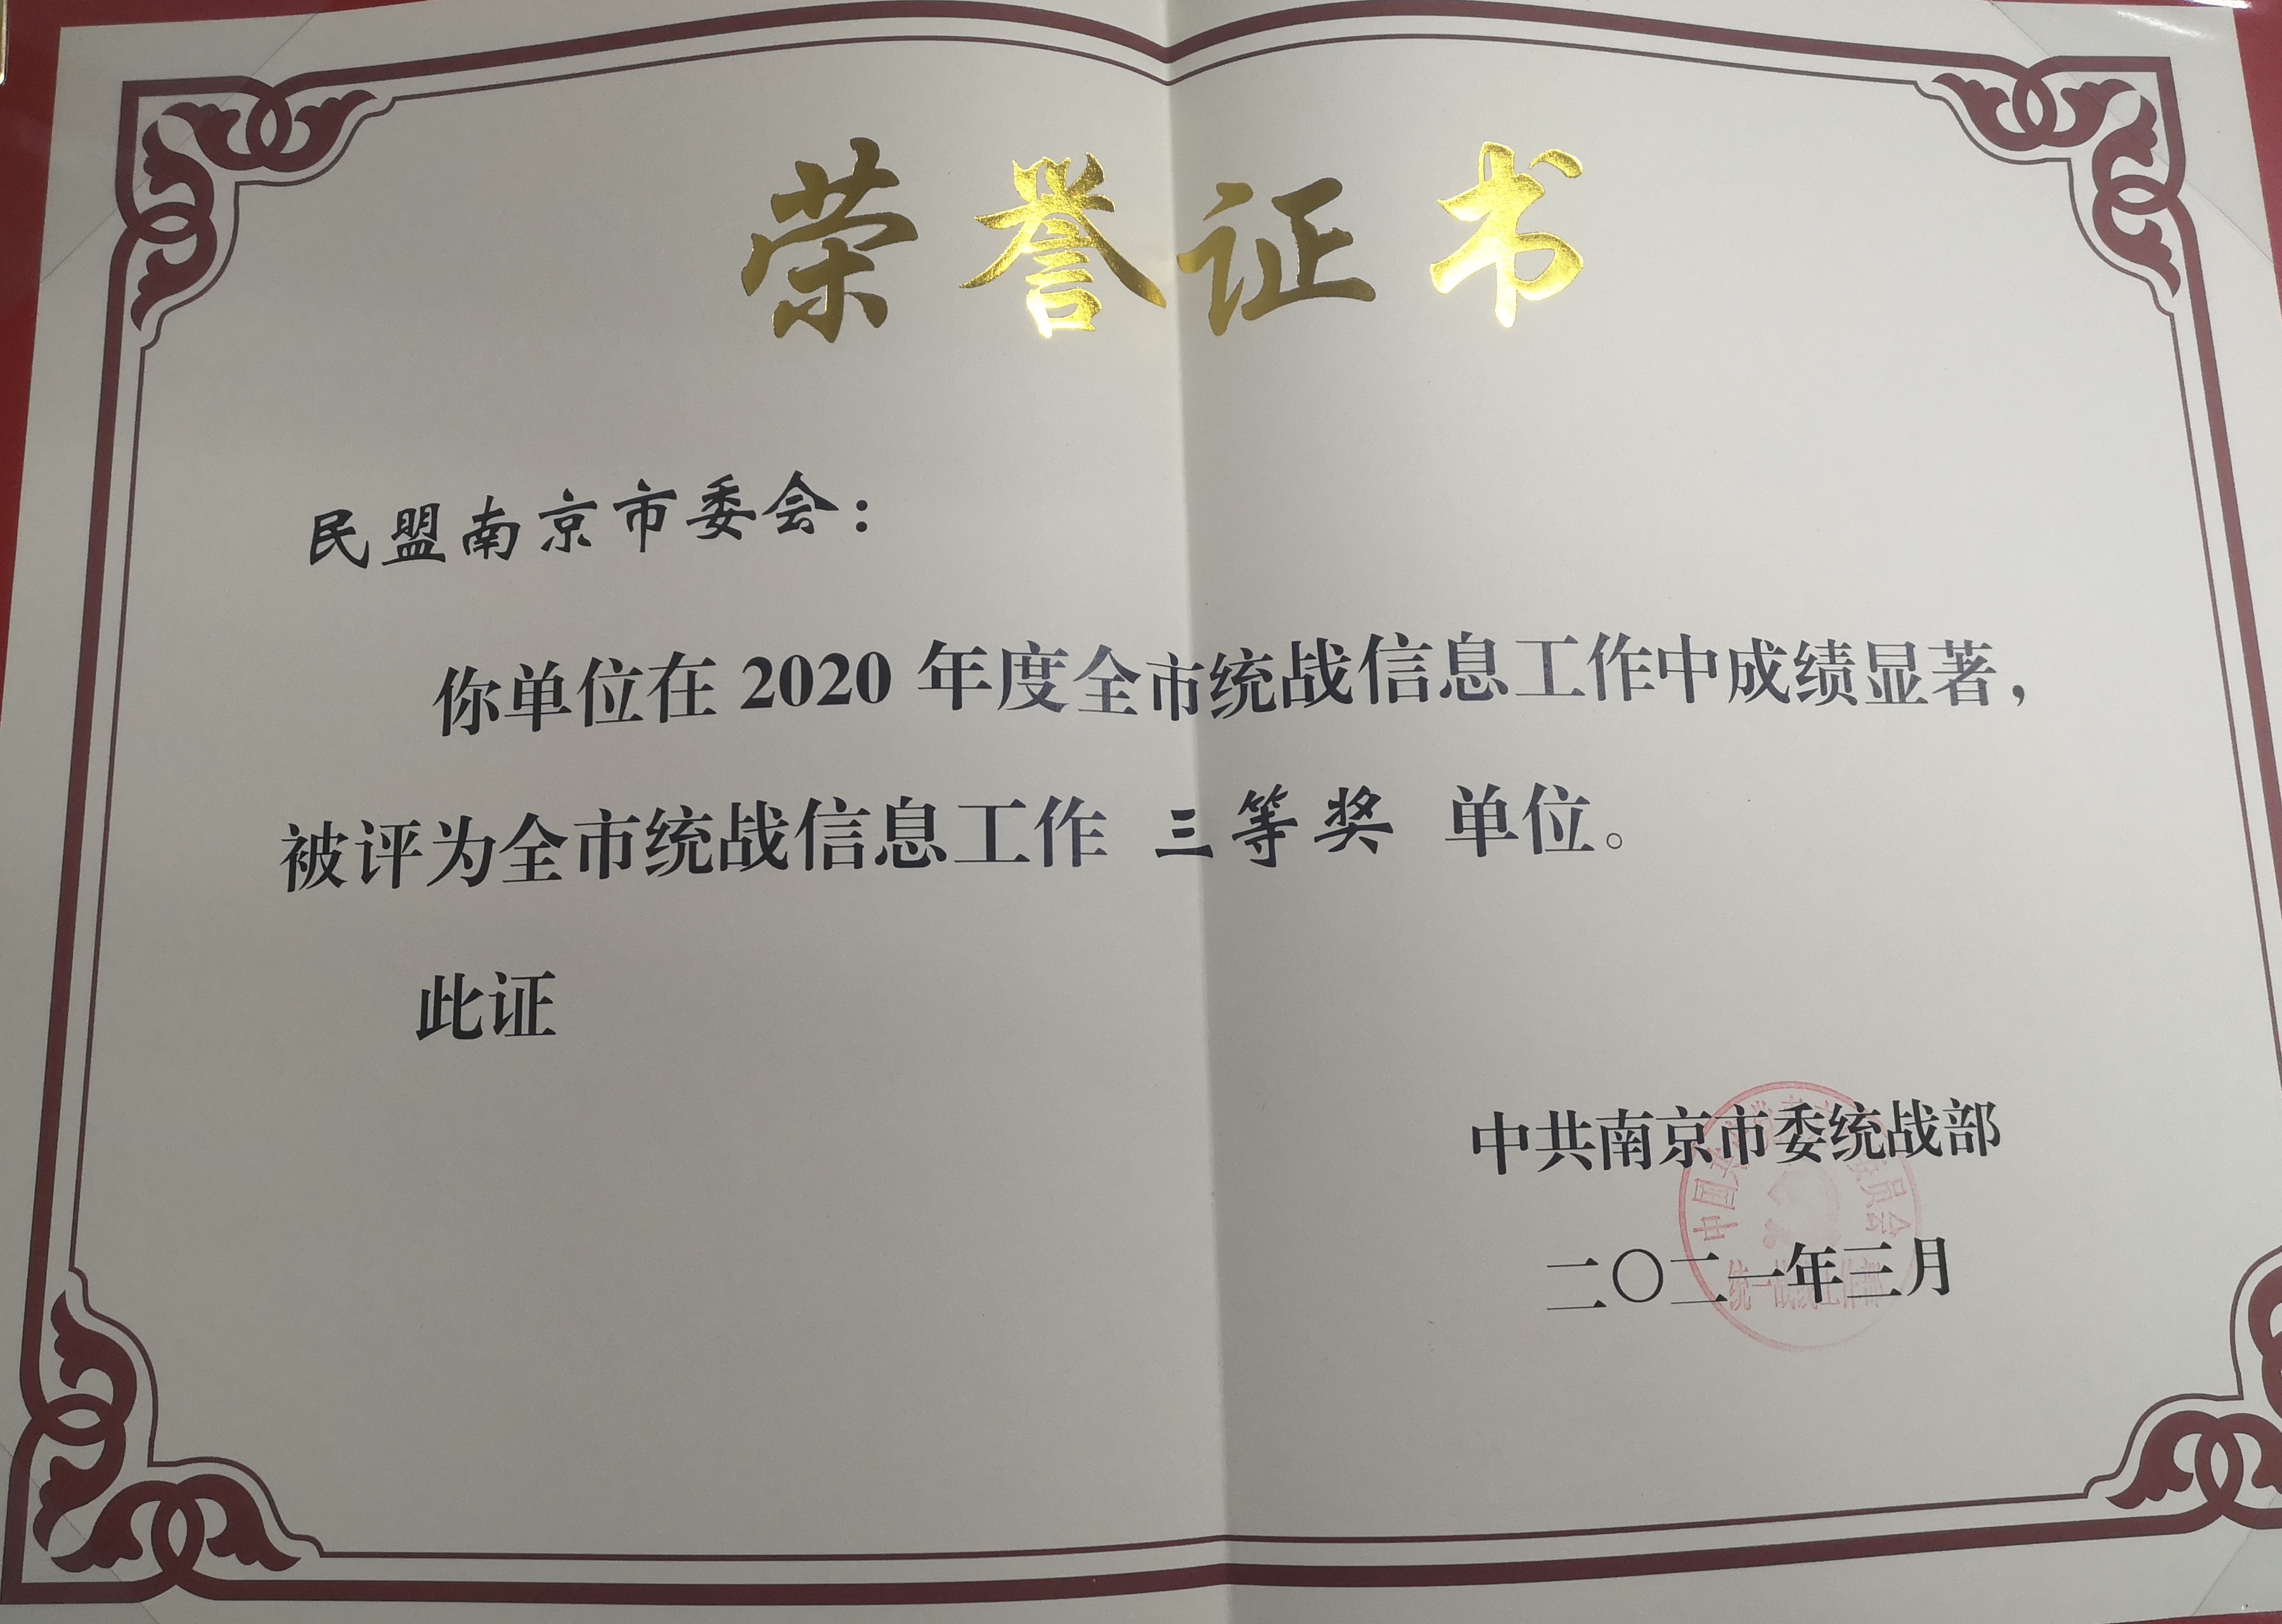 荣誉证书
民盟南京市委会：
你单位在 2020 年度全市统战信息工作中成绩显著，
被评为全市统战信息工作 三等奖 单位。
此证
中共南京市委统战部
二〇二一年三月
统一战线工作部